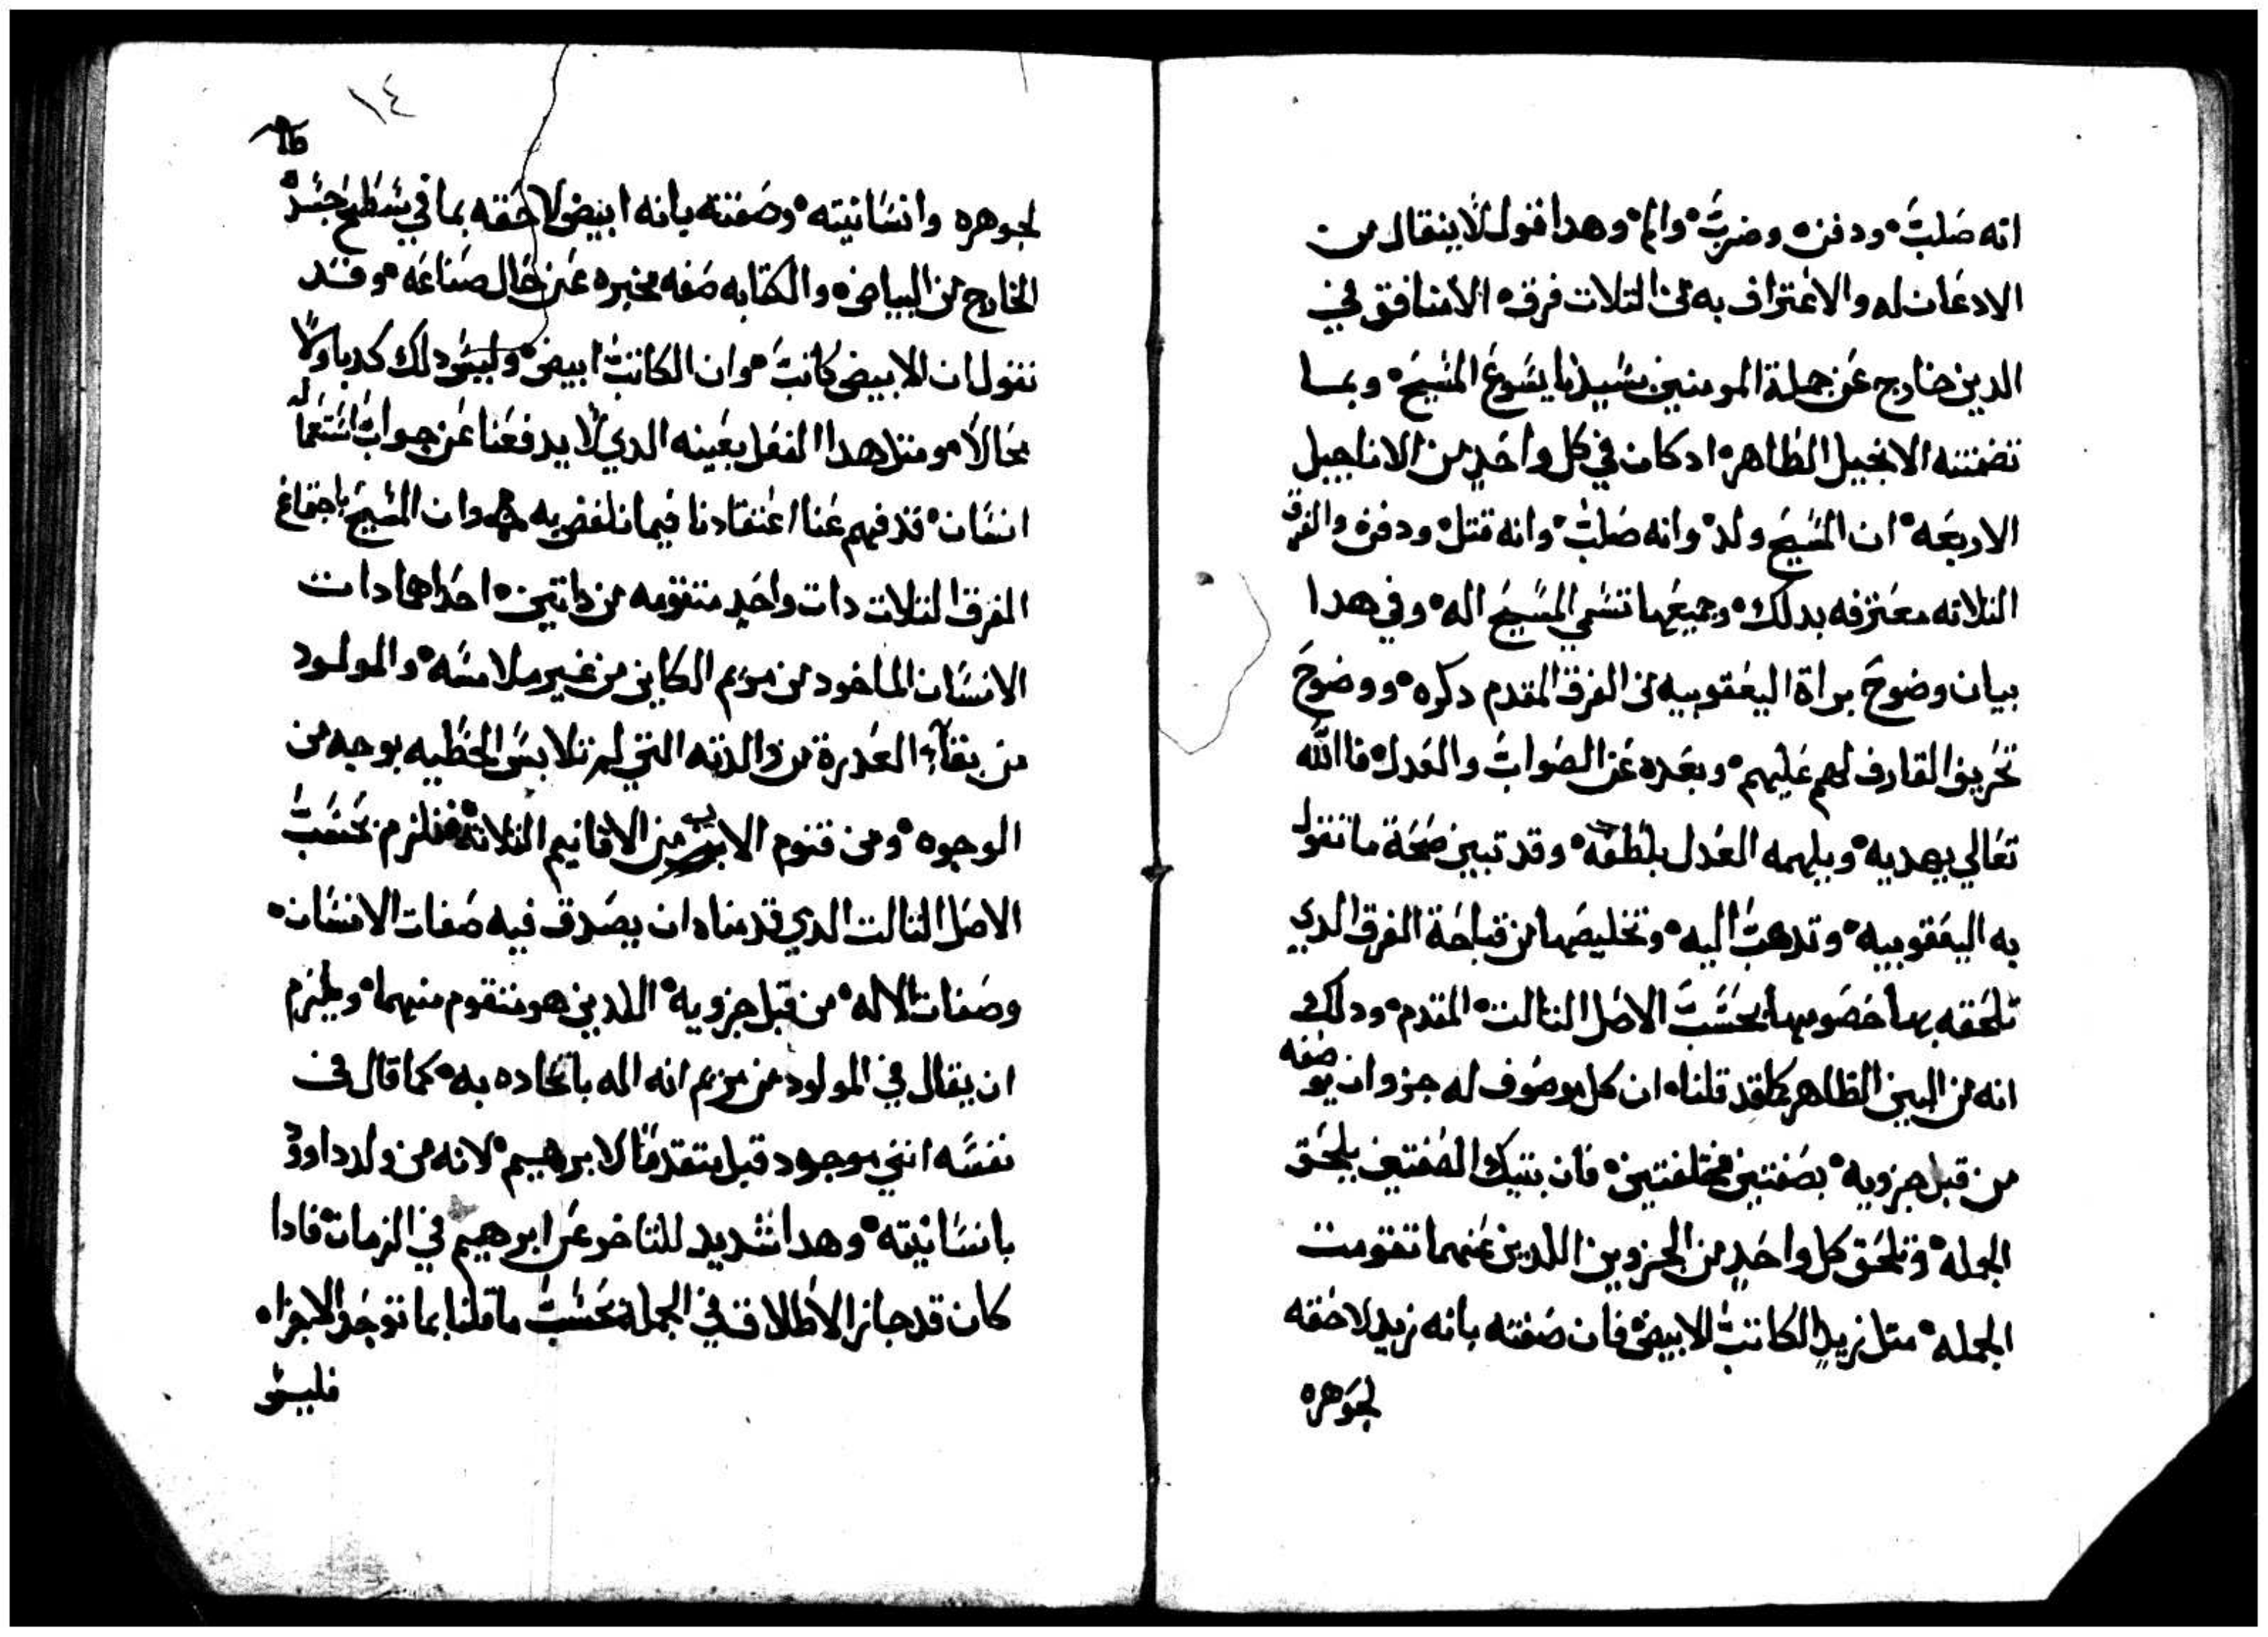 انه صلب ودفن وضرب والم وهدا قول لا ينقال من
الادعان له والاعتراف به من التلات فرق الا منافق في
الدين خارج عن جملة المومنين بسيدنا يسوع المسيح وبما
تضمنته الانجيل الظاهره ادكان في كل واحد من الاناجيل
الاربعه ان المسيح ولد وانه صلب وانه قتل ودفن والفرق
التلاته معترفه بدلك وجميعها تسمي المسيح اله وفي هدا
بيان وضوح براة اليعقوبيه من الفرق المقدم دكره ووضوح
تحريف القارف لهم عليهم وبعده عن الصواب والعدل فالله
تعالي يهديه ويلهمه العدل بلطفه وقد تبين صحة ما تقول
به اليعقوبيه وتدهب اليه وتخليصها من قباحة الفرق الدي
تلحقه بها خصومها بحسب الاصل التالت المقدم ودلك
انه من البين الظاهر كما قد قلناه ان كل موصوف له جزوان يوصفه
من قبل جزويه بصفتين مختلفتين فان بتيك الصفتين يلحق
الجمله وتلحق كل واحد من الجزوين اللدين عنهما تقومت
الجمله متل زيد الكاتب الابيض فان صفته بانه زيد لاحقه
لجوهره
١٤
لجوهره وانسانيته وصفته بانه ابيض لاحقه بما في سطح جسده
الخارج من البياض والكتابه صفه مخبره عن حال صناعه وقد
نقول ان الابيض كاتب وان الكاتب ابيض وليس دلك كدبا ولا
محالا ومتل هدا الفعل بعينه الدي لا يدفعنا عن جواب استعماله
انسان قد فهم عنا اعتقادنا فيما نلفض به هو وان المسيح باجتماع
الفرق التلات دات واحد متقومه من داتين احداهما دات
الانسان الماخود من مريم الكاين من غير ملامسه والمولود
من بقآء العدرة من والدته التي لم تلابس الخطيه بوجه من
الوجوه ومن قنوم الاب من الاقانيم التلاتة فتلزم بحسب
الاصل التالت الدي قدمناه ان يصدق فيه صفات الانسان
وصفات الاله من قبل جزويه اللدين هو متقوم منهما ويلزم
ان يقال في المولود من مريم انه اله باتحاده به كما قال في
نفسه انني موجود قبل متقدما لابرهيم لانه من ولد داوود
بانسانيته وهدا شديد للتاخر عن ابرهيم في الزمان فادا
كان قد جاز الاطلاق في الجملة بحسب ما قلنا بما توجد الاجزاه
فليس